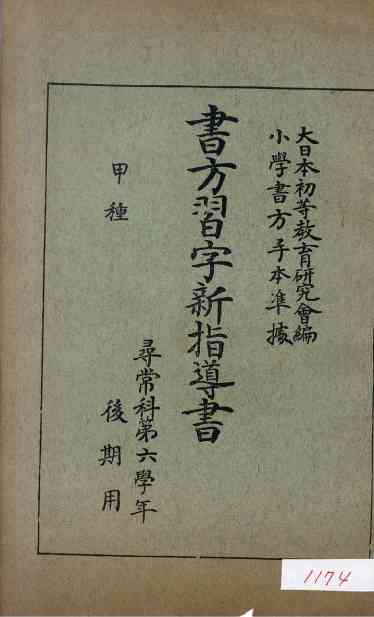 大日本初等教育研究會編
小學書方手本準據
書方習字新指導書
尋常科第六學年
後期用
甲種
1174